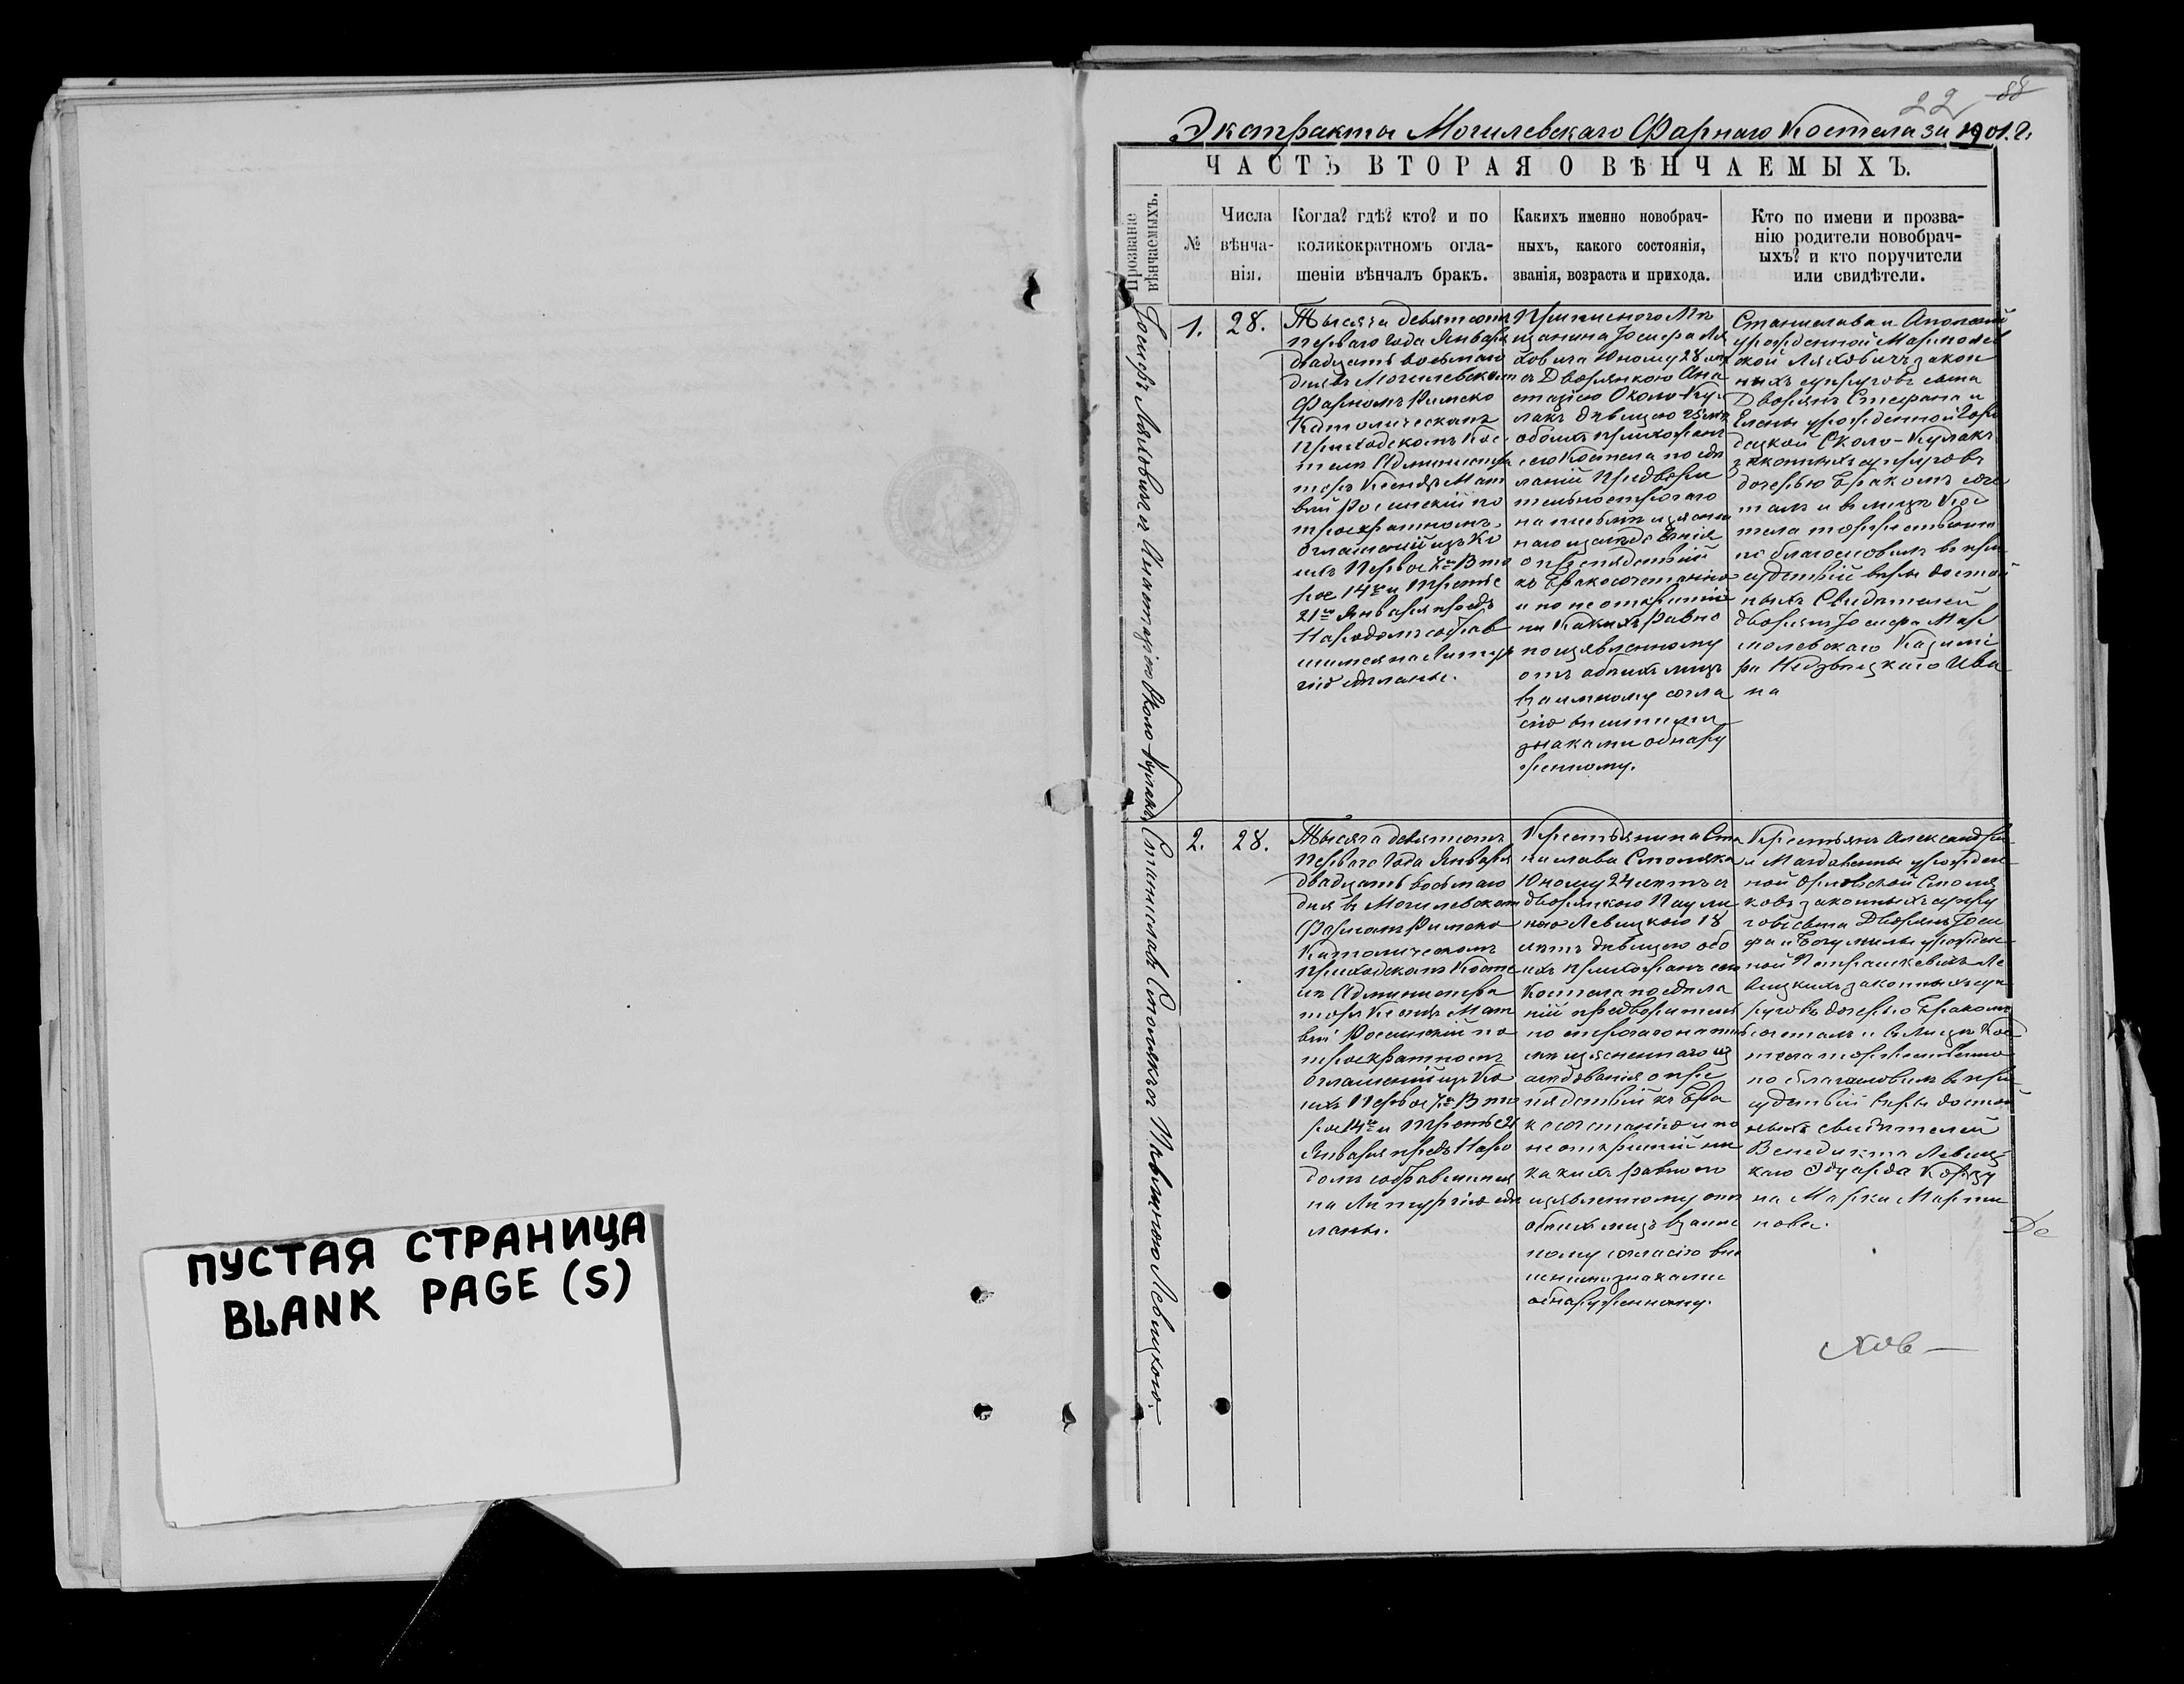 22 88
Экстракты Могилевскаго Фарнаго Костела за 1901 г.
ЧАСТЬ ВТОРАЯ О ВѢНЧАЕМЫХЪ.
Прозваніе
вѣнчаемыхъ.
№
Числа
вѣнча-
нія.
Когда? гдѣ? кто? и по
коликократномъ огла-
шеніи вѣнчалъ бракъ.
Какихъ именно новобрач-
ныхъ, какого состоянія,
званія, возраста и прихода.
Кто по имени и прозва-
нію родители новобрач-
ыхъ? и кто поручители
или свидѣтели.
Іосифъ Ляховичъ съ Анастазіею Около-Кулакъ
1.
28.
Тысяча девятсотъ
перваго года Января
двадцать восьмаго
дня въ Могилевскомъ
Фарномъ Римско
Католическомъ
Приходскомъ Кос
телѣ Администра
торъ Ксендзъ Мат
вѣй Росинскій по
троекратномъ
оглашеній изъ ко
ихъ Первое 7го Вто
рое 14го и Третье
21го Января предъ
Народомъ собрав
шимся на Литур
гію сдѣланы.
мѣ
щанина Іосифа Ля
ховича Юношу 28 лѣтъ
съ Дворянкою Ана
стазіею Около-Ку
лакъ дѣвицею 25 лѣтъ
обоихъ прихожанъ
сего Костела по сдѣ
ланій предвари
тельно строгаго
на письмѣ изъясн
наго изслѣдованія
о препядствій
къ бракосочетанію
и по не открытій
ни какихъ равно
по изъявленному
отъ обоихъ лицъ
взаимному согла
сію внѣшними
знаками обнару
женному.
Станислава и Аполоніи
урожденной Мармолев
ской Ляховичъ закон
ныхъ супруговъ сына
Дворянъ Стефана и
Елены урожденной
Около-Кулакъ
законныхъ супруговъ
дочерью бракомъ соче
талъ и въ лицѣ Кос
тела торжественно
по благословилъ въ при
судствій вѣры достой
ныхъ Свидѣтелей
дворянъ Іосифа Мар
молевскаго Казимі
ра Недзвецкаго Ива
на
Станиславъ Стомякъ съ Павлиною Левицкою.
2.
28.
Тысяча девятсотъ
Перваго года Января
двадцать восьмаго
дня въ Могилевскомъ
Фарномъ Римско
Католическомъ
Приходскомъ Косте
лѣ Администра
торъ Ксендзъ Мат
вѣй Росинскій по
троекратномъ
оглашеній изъ ко
ихъ Первое 7го Вто
рое 14го и Третье 21
Января предъ Наро
домъ собравшимся
на Литургію сдѣ
ланы.
Крестьянина Ста
нислава Стомяка
Юношу 24 лѣтъ съ
дворянкою Паули
ною Левицкою 18
лѣтъ дѣвицею обо
ихъ прихожанъ сего
Костела по сдѣла
ній предварительно
но строгаго на пись
мѣ изъясненнаго из
слѣдованія о пре
пядствій къ бра
косочетанію и по
неоткрытій ни
какихъ равно по
изъявленному отъ
обоихъ лицъ взаим
ному согласію внѣ
шними знаками
обнаруженному.
Крестьянъ Александра
и Магдалены урожден
ной Стомя
ковъ законныхъ супру
говъ сына Дворянъ Іоси
фа и Богумилы урожден
ной Петрашкевичъ Ле
вицкихъ законныхъ суп
руговъ дочерью бракомъ
сочеталъ и въ лицѣ Кос
тела торжественно
по благословилъ въ при
судствій вѣры достой
ныхъ свидѣтелей
Венедикта Левиц
каго Эдуарда Корзу
на Марка Марти
нова.
ПУСТАЯ СТРАНИЦА
BLANK PAGE (S)